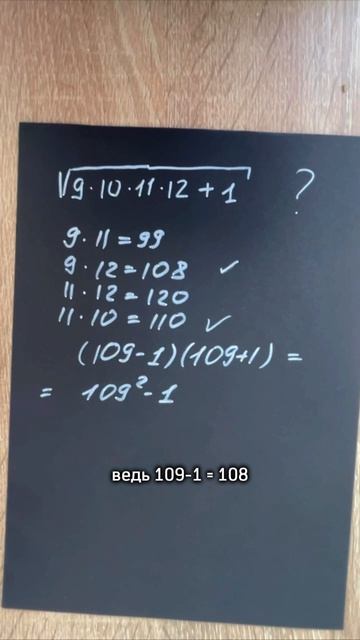 √9·10·11·12+1 ?
9·11=99
9·12=108 ✓
11·12=120
11·10=110 ✓
(109-1)(109+1)=
= 109²-1
ведь 109-1 = 108